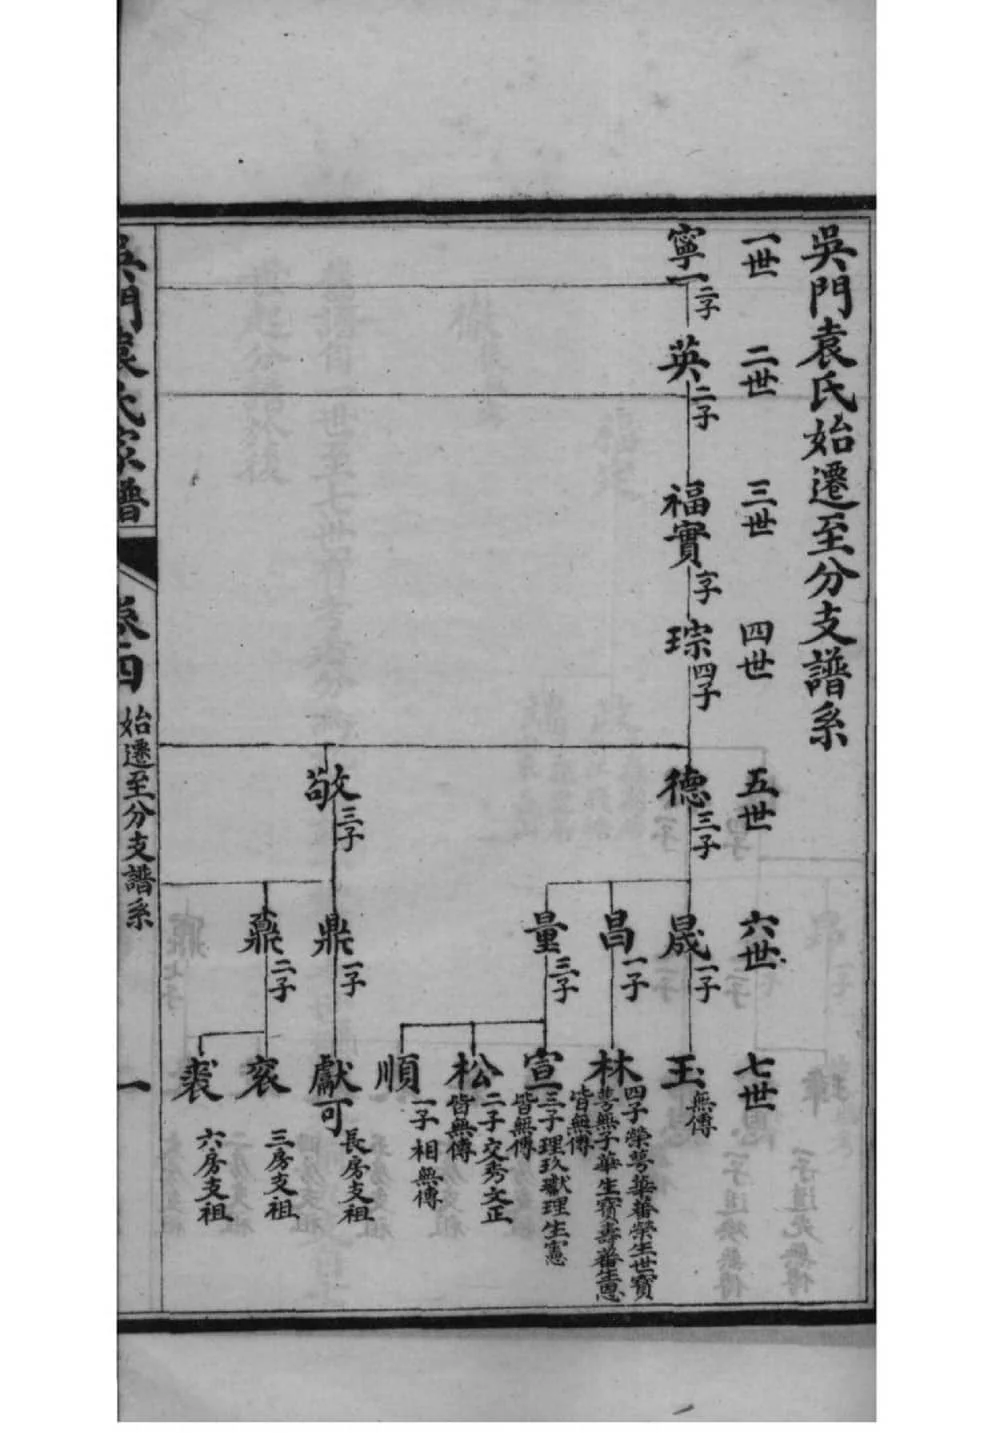 吳門袁氏始遷至分支譜系
一世
二世
三世
四世
五世
六世
七世
寧一 二子
英 二子
福實 一子
琮 四子
德 三子
敬 三子
晟 一子
昌 一子
量 三子
鼎 一子
鼐 二子
玉 無傳
林 四子榮萼華蕃榮生世寶
萼無子華生寶壽蕃生恩
皆無傳
宣 三子理玖瓛理生憲
皆無傳
松 二子交秀文正
皆無傳
順 一子相無傳
獻可 長房支祖
衮 三房支祖
裘 六房支祖
吳門袁氏家譜
卷四
始遷至分支譜系
一